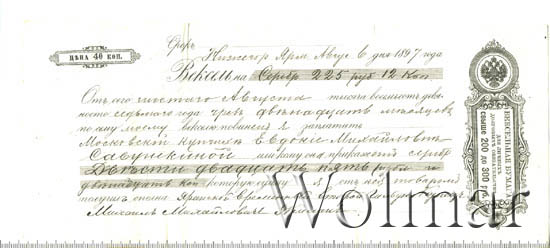 ЦѢНА 40 КОП.
Срокъ
Нижегор Ярм. Авгус. 6 дня 1897 года
Вексель на Серебр 225 руб 12 коп
Отъ сего шестаго Августа тысяча восемьсотъ девя
носто седьмаго года чрезъ двѣнадцать мѣсяцевъ
по сему моему векселю повиненъ я заплатить
Московской купчихѣ Евдокіи Михайловнѣ
или кому она прикажетъ серебр
Двѣсти двадцать пять руб
двѣнадцать коп которую я отъ нея товаромъ
Михаилъ Михайловичъ
ВЕКСЕЛЬНАЯ БУМАГА
ДЛЯ ЛИЧНЫХЪ
ДОЛГОВЫХЪ ОБЯЗАТЕЛЬСТВЪ
СВЫШЕ 200 ДО 300 РУБ.
Wolmar